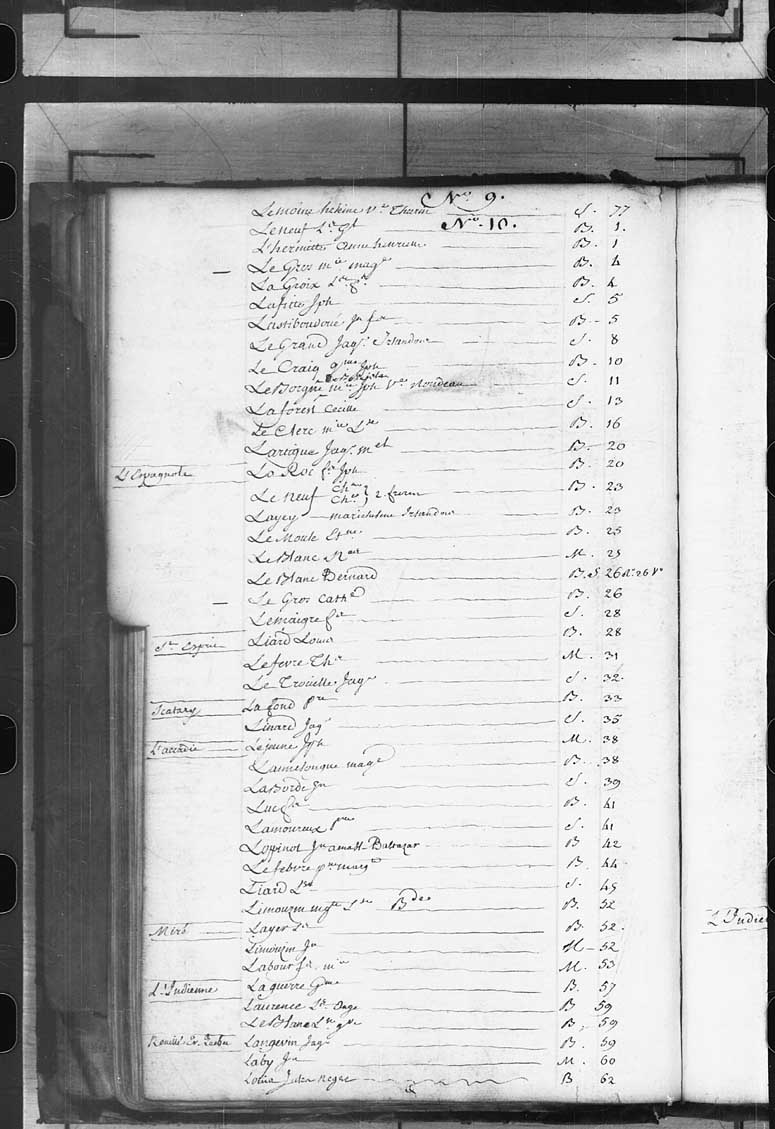 No. 9.
Lemoine helaine Ve Thurin S. 77
No. 10.
Le neuf Ls B. 1.
L'hermitte Anne henriette B. 1
Le Gros mie magte B. 4
La Groix Ls B. 4
Lafitte Jph S. 5
Lastiboudoué Jn fr B. 5
Le Grand Jaqs. Irlandois S. 8
Le Craig gme Jph B. 10
Le Borgne mie Jph Ve Rondeau S. 11
Laforest Cecille S. 13
Le Clerc mie Lse B. 16
Lartigue Jaqs. mel B. 20
L'Espagnole La Roc fs Jph B. 20
Le neuf Chs Chs 2 freres B. 23
Layey Irlandois B. 23
Le Moule Etne B. 25
Le Blanc M. 25
Le Blanc Bernard B. S. 26 No. 26 Vo
Le Gros Cathe B. 26
Lemaigre fs S. 28
St. Esprit Liard Louis B. 28
Lefevre Ths M. 31
Le Trouelle Jaqs S. 32
Scatary La fond pre B. 33
Linard Jaqs S. 35
L'accadie Lejeune Jph M. 38
Lannelongue magte B. 38
La Borde Jn S. 39
Luc fs B. 41
Lamoureux pre S. 41
Loppinot Jn amast Baltazar B. 42
Lefebvre pre B. 44
Liard Ls S. 45
Limouzin Lse B. 52
Miré Layer Ls B. 52.
Limouzin Jn M. 52
Labour fs mie M. 53
L'Indienne Laguerre gme B. 57
Laurence Ls B 59
Le Blanc Ls B. 59
Langevin Jaqs B. 59
Laby Jn M. 60
negre B 62
L'Indie